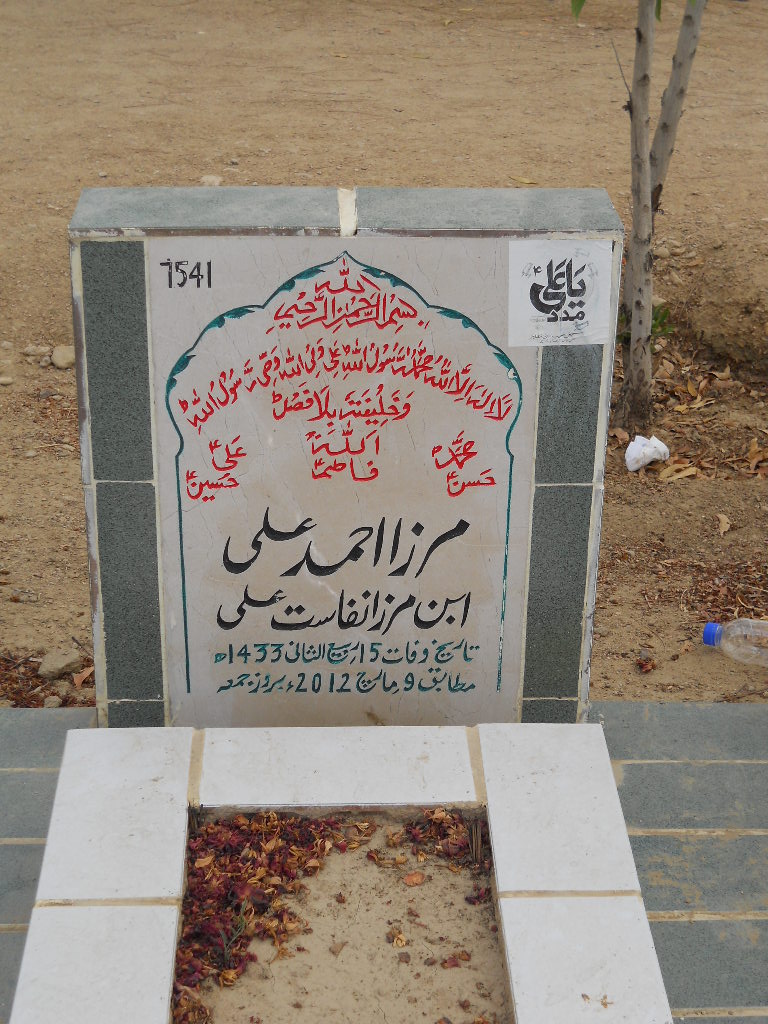 7541
یا علیؑ
مدد
بسم الله الرحمن الرحيم
لا اله الا الله محمد رسول الله علی ولی الله وصی رسول الله
وخليفته بلا فصل
الله
محمدؐ علیؑ
فاطمہؑ
حسنؑ حسینؑ
مرزا احمد علی
ابن مرزا نفاست علی
تاریخ وفات 15 ربیع الثانی 1433ھ
مطابق 9 مارچ 2012ء بروز جمعہ